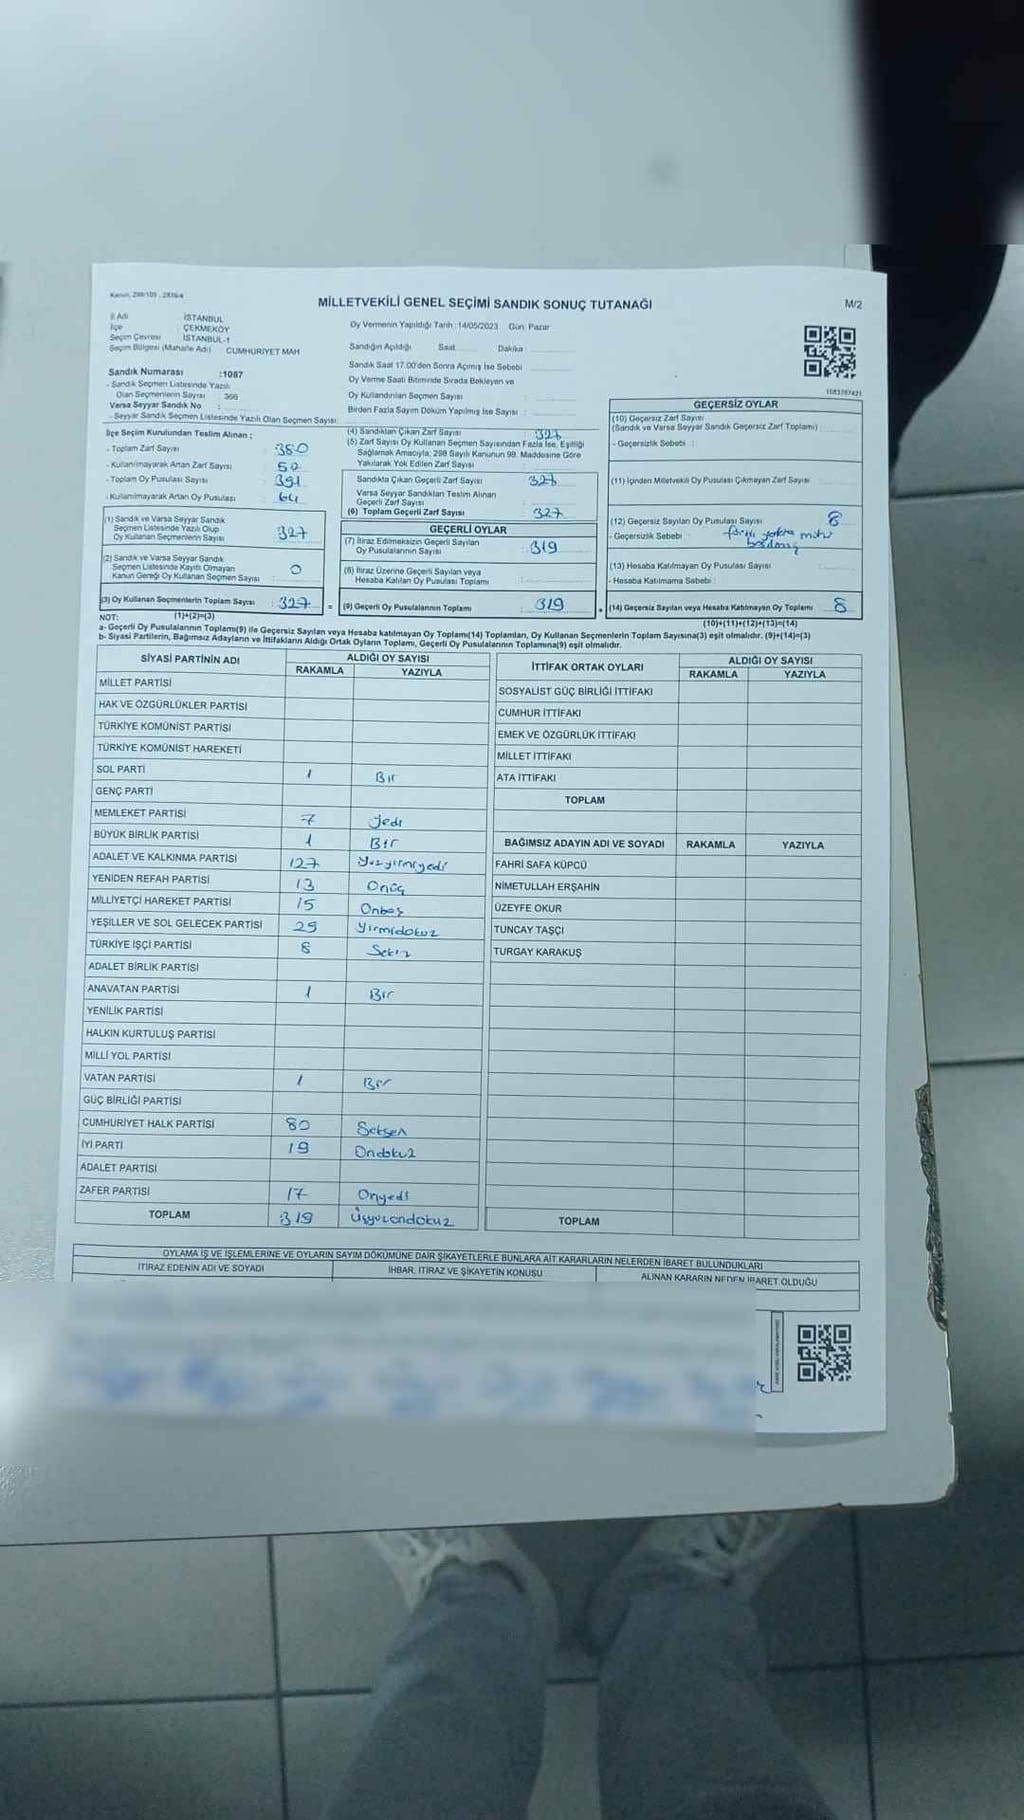 MİLLETVEKİLİ GENEL SEÇİMİ SANDIK SONUÇ TUTANAĞI
M/2
İl Adı : İSTANBUL
İlçe : ÇEKMEKÖY
Seçim Çevresi : İSTANBUL-1
Seçim Bölgesi (Mahalle Adı) : CUMHURİYET MAH
Sandık Numarası :1087
- Sandık Seçmen Listesinde Yazılı
Olan Seçmenlerin Sayısı : 366
Varsa Seyyar Sandık No :
- Seyyar Sandık Seçmen Listesinde Yazılı Olan Seçmen Sayısı:
Oy Vermenin Yapıldığı Tarih :14/05/2023 Gün: Pazar
Sandığın Açıldığı Saat Dakika
Sandık Saat 17.00'den Sonra Açımış İse Sebebi
Oy Verme Saati Bitiminde Sırada Bekleyen ve
Oy Kullandırılan Seçmen Sayısı
Birden Fazla Sayım Döküm Yapılmış İse Sayısı :
İlçe Seçim Kurulundan Teslim Alınan ;
- Toplam Zarf Sayısı : 380
- Kullanılmayarak Artan Zarf Sayısı : 52
- Toplam Oy Pusulası Sayısı : 391
- Kullanılmayarak Artan Oy Pusulası : 64
(1) Sandık ve Varsa Seyyar Sandık
Seçmen Listesinde Yazılı Olup
Oy Kullanan Seçmenlerin Sayısı : 327
(2) Sandık ve Varsa Seyyar Sandık
Seçmen Listesinde Kayıtlı Olmayan
Kanun Gereği Oy Kullanan Seçmen Sayısı : 0
(3) Oy Kullanan Seçmenlerin Toplam Sayısı : 327 =
(1)+(2)=(3)
(4) Sandıktan Çıkan Zarf Sayısı : 327
(5) Zarf Sayısı Oy Kullanan Seçmen Sayısından Fazla İse, Eşitliği
Sağlamak Amacıyla; 298 Sayılı Kanunun 98. Maddesine Göre
Yakılarak Yok Edilen Zarf Sayısı
Sandıkta Çıkan Geçerli Zarf Sayısı : 327
Varsa Seyyar Sandıktan Teslim Alınan
Geçerli Zarf Sayısı
(6) Toplam Geçerli Zarf Sayısı : 327
GEÇERLİ OYLAR
(7) İtiraz Edilmeksizin Geçerli Sayılan
Oy Pusulalarının Sayısı : 319
(8) İtiraz Üzerine Geçerli Sayılan veya
Hesaba Katılan Oy Pusulası Toplamı
(9) Geçerli Oy Pusulalarının Toplamı : 319
GEÇERSİZ OYLAR
(10) Geçersiz Zarf Sayısı
(Sandık ve Varsa Seyyar Sandık Geçersiz Zarf Toplamı)
- Geçersizlik Sebebi :
(11) İçinden Milletvekili Oy Pusulası Çıkmayan Zarf Sayısı
(12) Geçersiz Sayılan Oy Pusulası Sayısı : 8
- Geçersizlik Sebebi :
(13) Hesaba Katılmayan Oy Pusulası Sayısı
- Hesaba Katılmama Sebebi :
(14) Geçersiz Sayılan veya Hesaba Katılmayan Oy Toplamı : 8
(10)+(11)+(12)+(13)=(14)
NOT:
a- Geçerli Oy Pusulalarının Toplamı(9) ile Geçersiz Sayılan veya Hesaba katılmayan Oy Toplamı(14) Toplamları, Oy Kullanan Seçmenlerin Toplam Sayısına(3) eşit olmalıdır. (9)+(14)=(3)
b- Siyasi Partilerin, Bağımsız Adayların ve İttifakların Aldığı Ortak Oyların Toplamı, Geçerli Oy Pusulalarının Toplamına(9) eşit olmalıdır.
SİYASİ PARTİNİN ADI ALDIĞI OY SAYISI
RAKAMLA YAZIYLA
MİLLET PARTİSİ
HAK VE ÖZGÜRLÜKLER PARTİSİ
TÜRKİYE KOMÜNİST PARTİSİ
TÜRKİYE KOMÜNİST HAREKETİ
SOL PARTİ 1 Bir
GENÇ PARTİ
MEMLEKET PARTİSİ 7 Yedi
BÜYÜK BİRLİK PARTİSİ 1 Bir
ADALET VE KALKINMA PARTİSİ 127 Yüzyirmiyedi
YENİDEN REFAH PARTİSİ 13 Onüç
MİLLİYETÇİ HAREKET PARTİSİ 15 Onbeş
YEŞİLLER VE SOL GELECEK PARTİSİ 29 Yirmidokuz
TÜRKİYE İŞÇİ PARTİSİ 8 Sekiz
ADALET BİRLİK PARTİSİ
ANAVATAN PARTİSİ 1 Bir
YENİLİK PARTİSİ
HALKIN KURTULUŞ PARTİSİ
MİLLİ YOL PARTİSİ
VATAN PARTİSİ 1 Bir
GÜÇ BİRLİĞİ PARTİSİ
CUMHURİYET HALK PARTİSİ 80 Seksen
İYİ PARTİ 19 Ondokuz
ADALET PARTİSİ
ZAFER PARTİSİ 17 Onyedi
TOPLAM 319 Üçyüzondokuz
İTTİFAK ORTAK OYLARI ALDIĞI OY SAYISI
RAKAMLA YAZIYLA
SOSYALİST GÜÇ BİRLİĞİ İTTİFAKI
CUMHUR İTTİFAKI
EMEK VE ÖZGÜRLÜK İTTİFAKI
MİLLET İTTİFAKI
ATA İTTİFAKI
TOPLAM
BAĞIMSIZ ADAYIN ADI VE SOYADI RAKAMLA YAZIYLA
FAHRİ SAFA KÜPCÜ
NİMETULLAH ERŞAHİN
ÜZEYFE OKUR
TUNCAY TAŞÇI
TURGAY KARAKUŞ
TOPLAM
OYLAMA İŞ VE İŞLEMLERİNE VE OYLARIN SAYIM DÖKÜMÜNE DAİR ŞİKAYETLERLE BUNLARA AİT KARARLARIN NELERDEN İBARET BULUNDUKLARI
İTİRAZ EDENİN ADI VE SOYADI İHBAR, İTİRAZ VE ŞİKAYETİN KONUSU ALINAN KARARIN NEDEN İBARET OLDUĞU